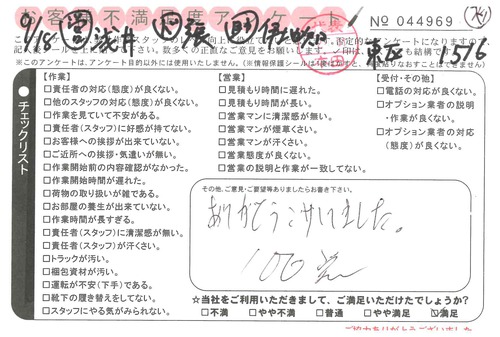 お客様不満足度アンケート
No 044969
9/18
東区 1576
※このアンケートは、アンケート目的以外には使用いたしません。
チェックリスト
【作業】
□責任者の対応(態度)が良くない。
□他のスタッフの対応(態度)が良くない。
□作業を見ていて不安がある。
□責任者(スタッフ)に好感が持てない。
□お客様への挨拶が出来ていない。
□ご近所への挨拶・気遣いが無い。
□作業開始前の内容確認がなかった。
□作業開始時間が遅れた。
□荷物の取り扱いが雑である。
□お部屋の養生が出来ていない。
□作業時間が長すぎる。
□責任者(スタッフ)に清潔感が無い。
□責任者(スタッフ)が汗くさい。
□トラックが汚い。
□梱包資材が汚い。
□運転が不安(下手)である。
□靴下の履き替えをしてない。
□スタッフにやる気がみられない。
【営業】
□見積もり時間に遅れた。
□見積もり時間が長い。
□営業マンに清潔感が無い。
□営業マンが煙草くさい。
□営業マンが汗くさい。
□営業態度が良くない。
□営業の説明と作業が一致してない。
【受付・その他】
□電話の対応が良くない。
□オプション業者の説明
・作業が良くない。
□オプション業者の対応
(態度)が良くない。
その他、ご意見・ご要望等ありましたらお書き下さい。
ありがとうございました。
100点
☆当社をご利用いただきまして、ご満足いただけたでしょうか?
□不満 □やや不満 □普通 □やや満足 ☑満足
ご協力ありがとうございました